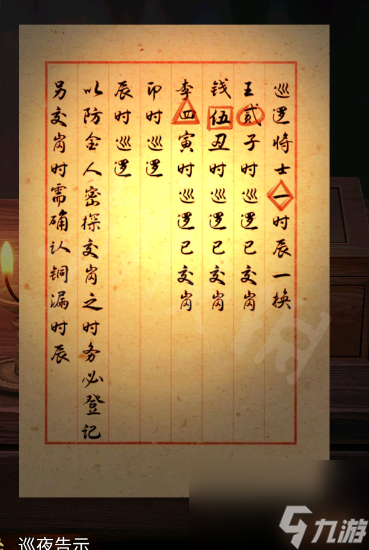 巡逻将士一时辰一换
王贰子时巡逻已交岗
钱伍丑时巡逻已交岗
李四寅时巡逻已交岗
卯时巡逻
辰时巡逻
以防金人密探交岗之时务必登记
另交岗时需确认铜漏时辰
巡夜告示
九游